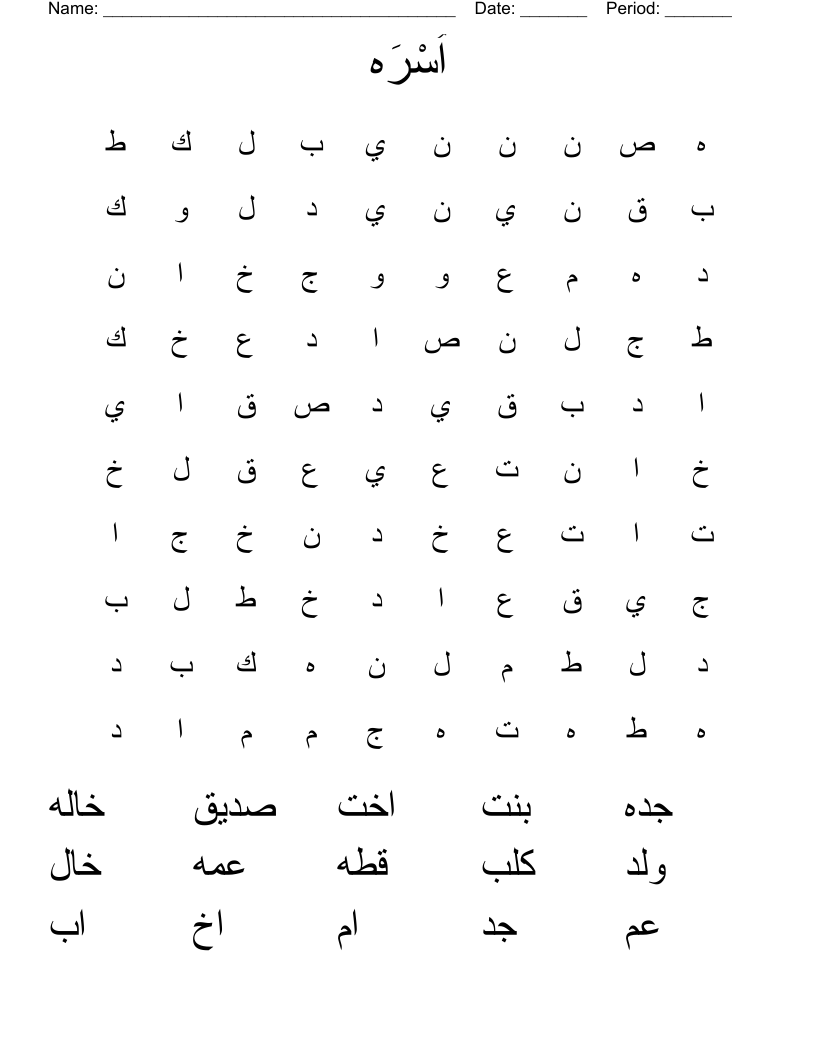 Name: ______________________________________ Date: _______ Period: _______
اَسْرَه
ه ص ن ن ن ي ب ل ك ط
ب ق ن ي ن ي د ل و ك
د ه م ع و و ج خ ا ن
ط ج ل ن ص ا د ع خ ك
ا د ب ق ي د ص ق ا ي
خ ا ن ت ع ي ع ق ل خ
ت ا ت ع خ د ن خ ج ا
ج ي ق ع ا د خ ط ل ب
د ل ط م ل ن ه ك ب د
ه ط ه ت ه ج م م ا د
جده بنت اخت صديق خاله
ولد كلب قطه عمه خال
عم جد ام اخ اب